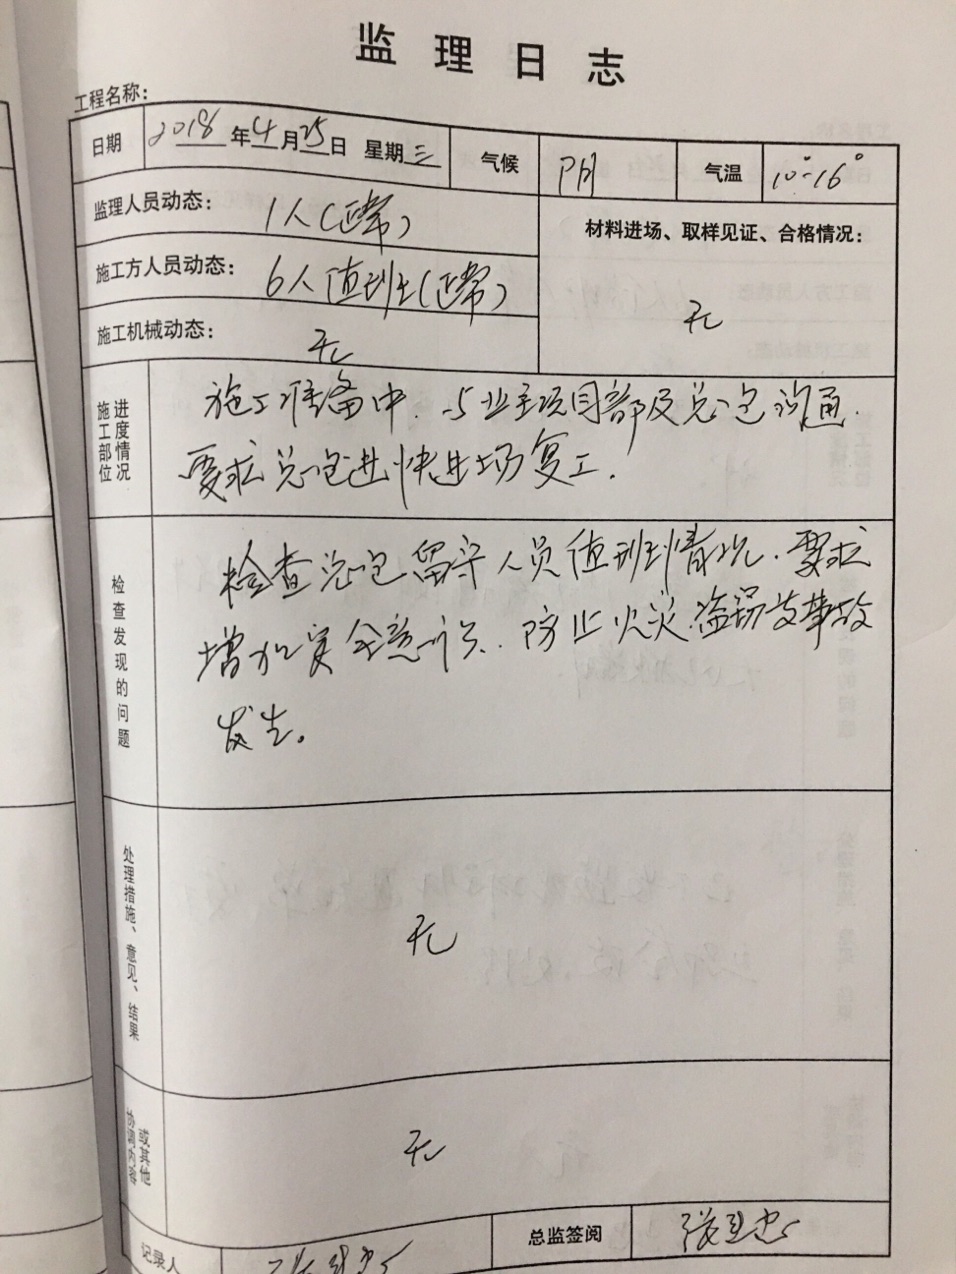 监理日志
工程名称：
日期 2018年4月25日 星期三 气候 阴 气温 10°-16°
监理人员动态： 1人(正常)
材料进场、取样见证、合格情况：
施工方人员动态： 6人值班(正常)
无
施工机械动态： 无
施工部位
进度情况
施工准备中．与业主项目部及总包沟通．
要求总包进快进场复工．
检查发现的问题
检查总包留守人员值班到情况．要求
增加安全意识．防止火灾．盗窃等事故
发生。
处理措施、意见、结果
无
协调内容
或其他
无
记录人
总监签阅